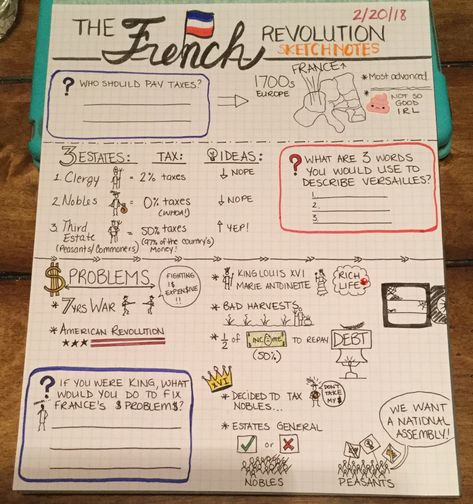 2/20/18
THE French REVOLUTION
SKETCHNOTES
? WHO SHOULD PAY TAXES?
1700s
EUROPE
FRANCE↑
*Most advanced
*
NOT SO
GOOD
IRL
3 ESTATES: TAX: IDEAS:
1. Clergy = 2% taxes ↓ NOPE
2. Nobles = 0% taxes ↓ NOPE
(WHOA!)
3. Third = 50% taxes ↑ YEP!
Estate (97% of the country's
(Peasants/Commoners) Money!)
? WHAT ARE 3 WORDS
YOU WOULD USE TO
DESCRIBE VERSAILLES?
1.
2.
3.
$ PROBLEMS
* 7 YRS WAR
FIGHTING
IS
EXPEN$IVE
!!
* AMERICAN REVOLUTION
* KING LOUIS XVI
MARIE ANTOINETTE
RICH
LIFE
* BAD HARVESTS
* 1/2 of INCOME TO REPAY DEBT
(50%)
? IF YOU WERE KING, WHAT
WOULD YOU DO TO FIX
FRANCE'S $ PROBLEM$?
XVI
* DECIDED TO TAX
NOBLES...
DON'T
TAKE
MY $
* ESTATES GENERAL
✓ OR X
NOBLES
PEASANTS
WE WANT
A NATIONAL
ASSEMBLY!